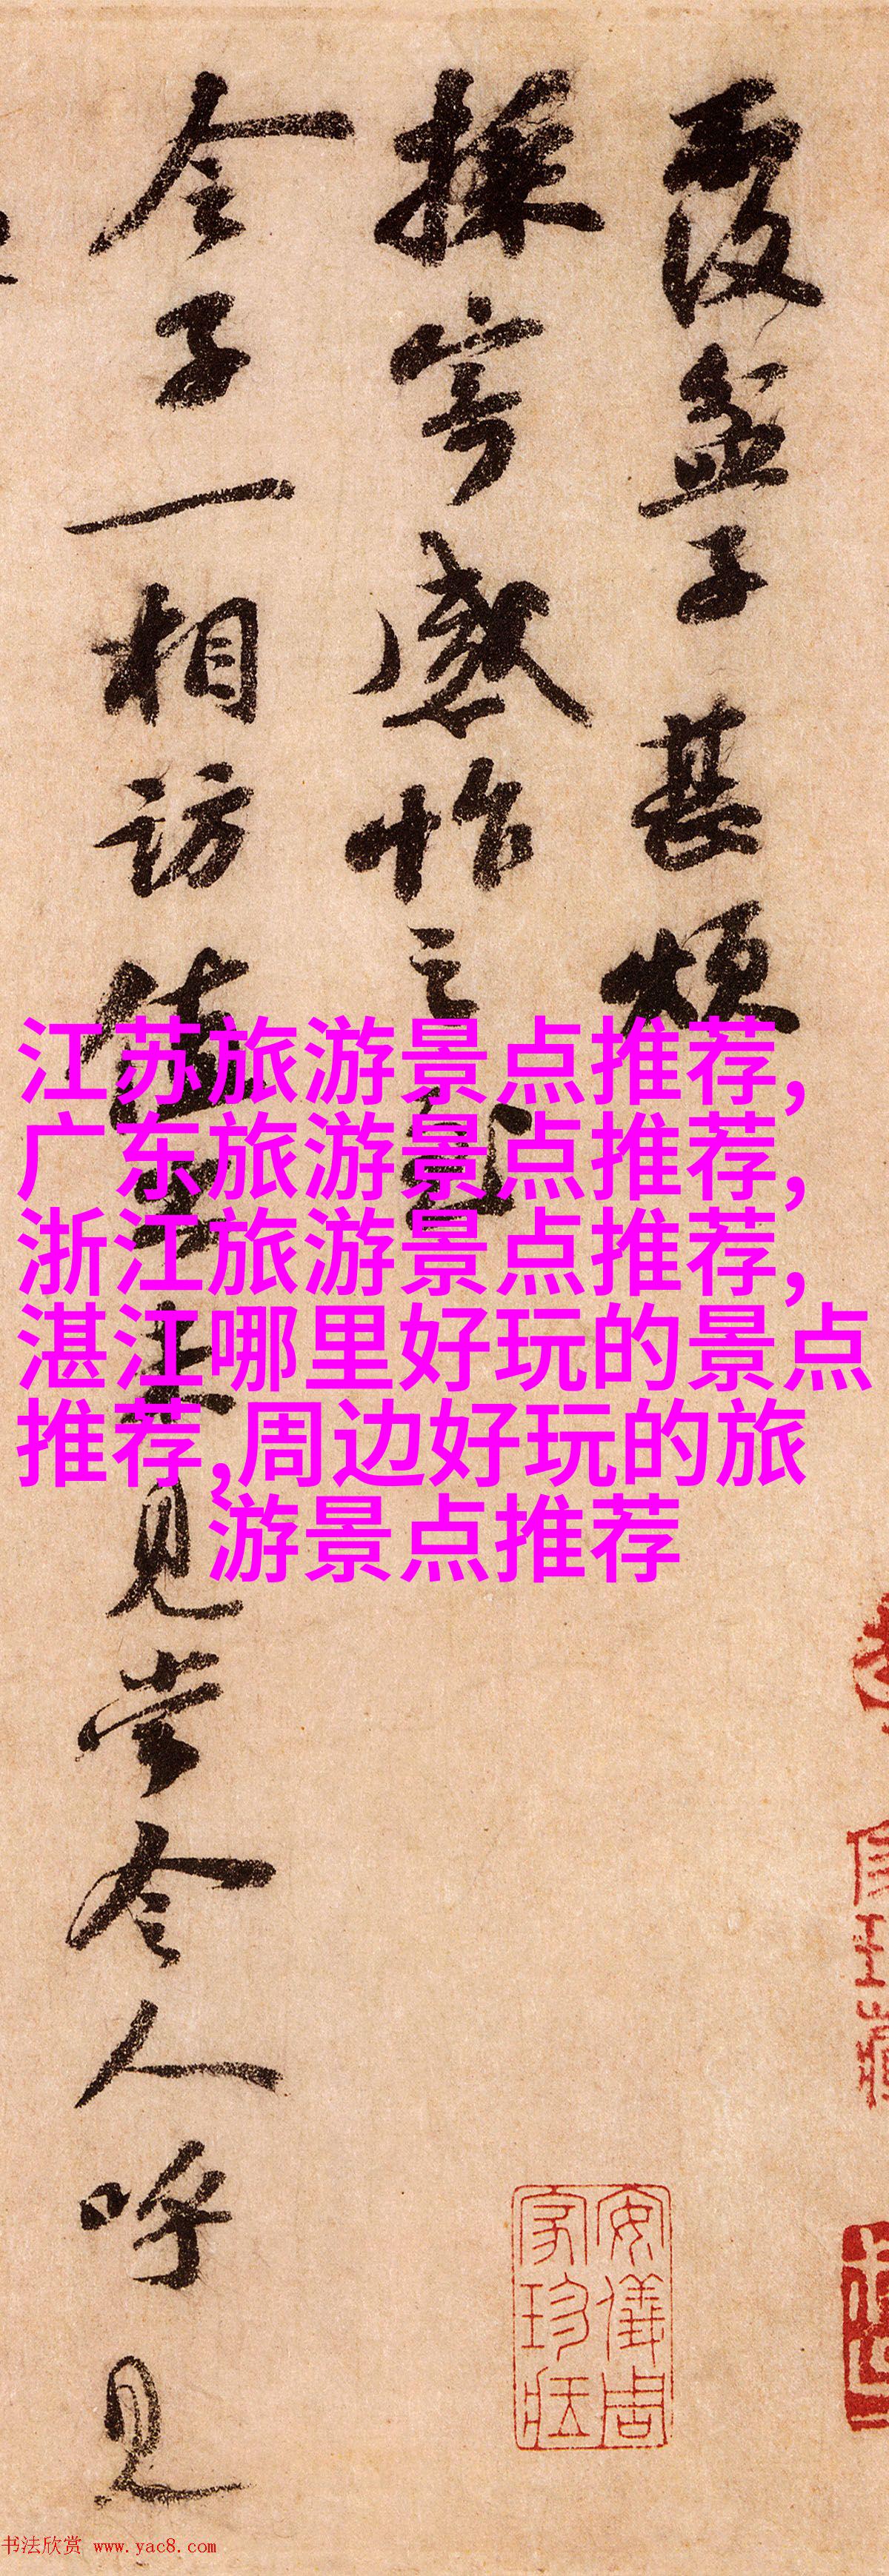 覆盆子甚烦
採寄感怍之至
令子一相访值
见尝令人呼见
江苏旅游景点推荐,
广东旅游景点推荐,
浙江旅游景点推荐,
湛江哪里好玩的景点
推荐,周边好玩的旅
游景点推荐
安儀周
家珍藏
书法欣赏 www.yac8.com